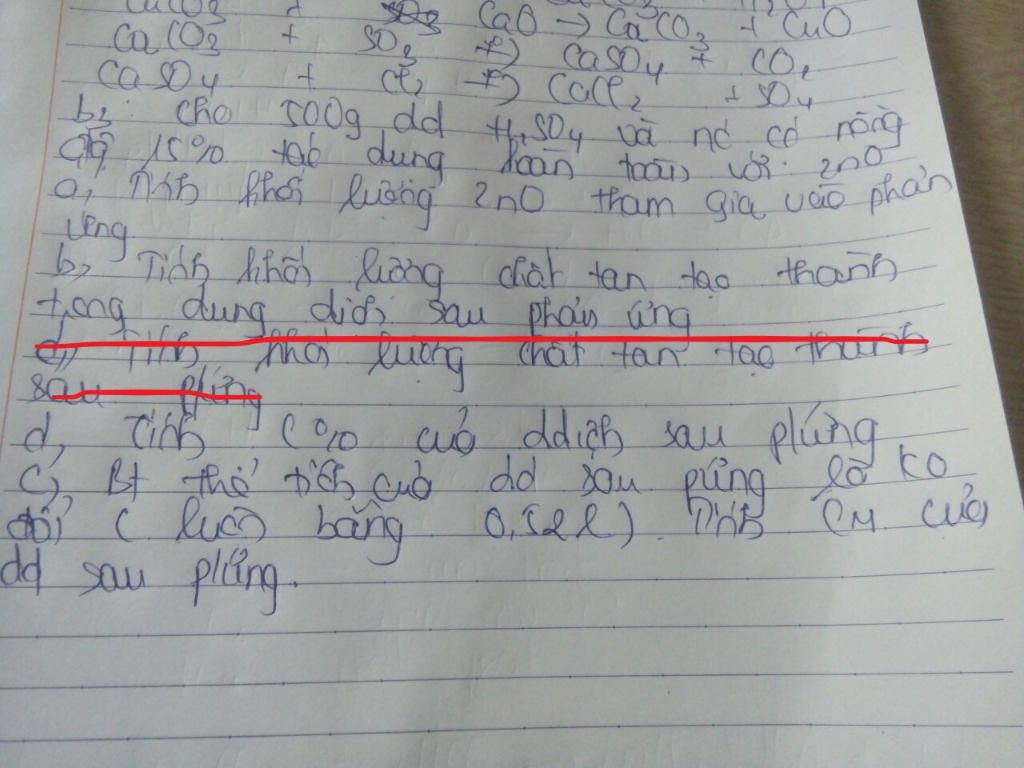 CaO → CaCO3 + CuO
CaCO3 + SO3 → CaSO4 + CO2
CaSO4 + Cl2 → CaCl2 + SO4
b2: cho 500g dd H2SO4 và nó có nồng
độ 15% tác dung hoàn toàn với: ZnO
a, Tính khối lượng ZnO tham gia vào phản
ứng
b, Tính khối lường chất tan tạo thành
trong dung dịch sau phản ứng
c, Tính khối lượng chất tan tạo thành
sau plứng
d, Tính C% của ddịch sau plứng
c, Bt thể tích của dd sau pứng là ko
đổi ( luôn bằng 0,52l). Tính CM của
dd sau plứng.